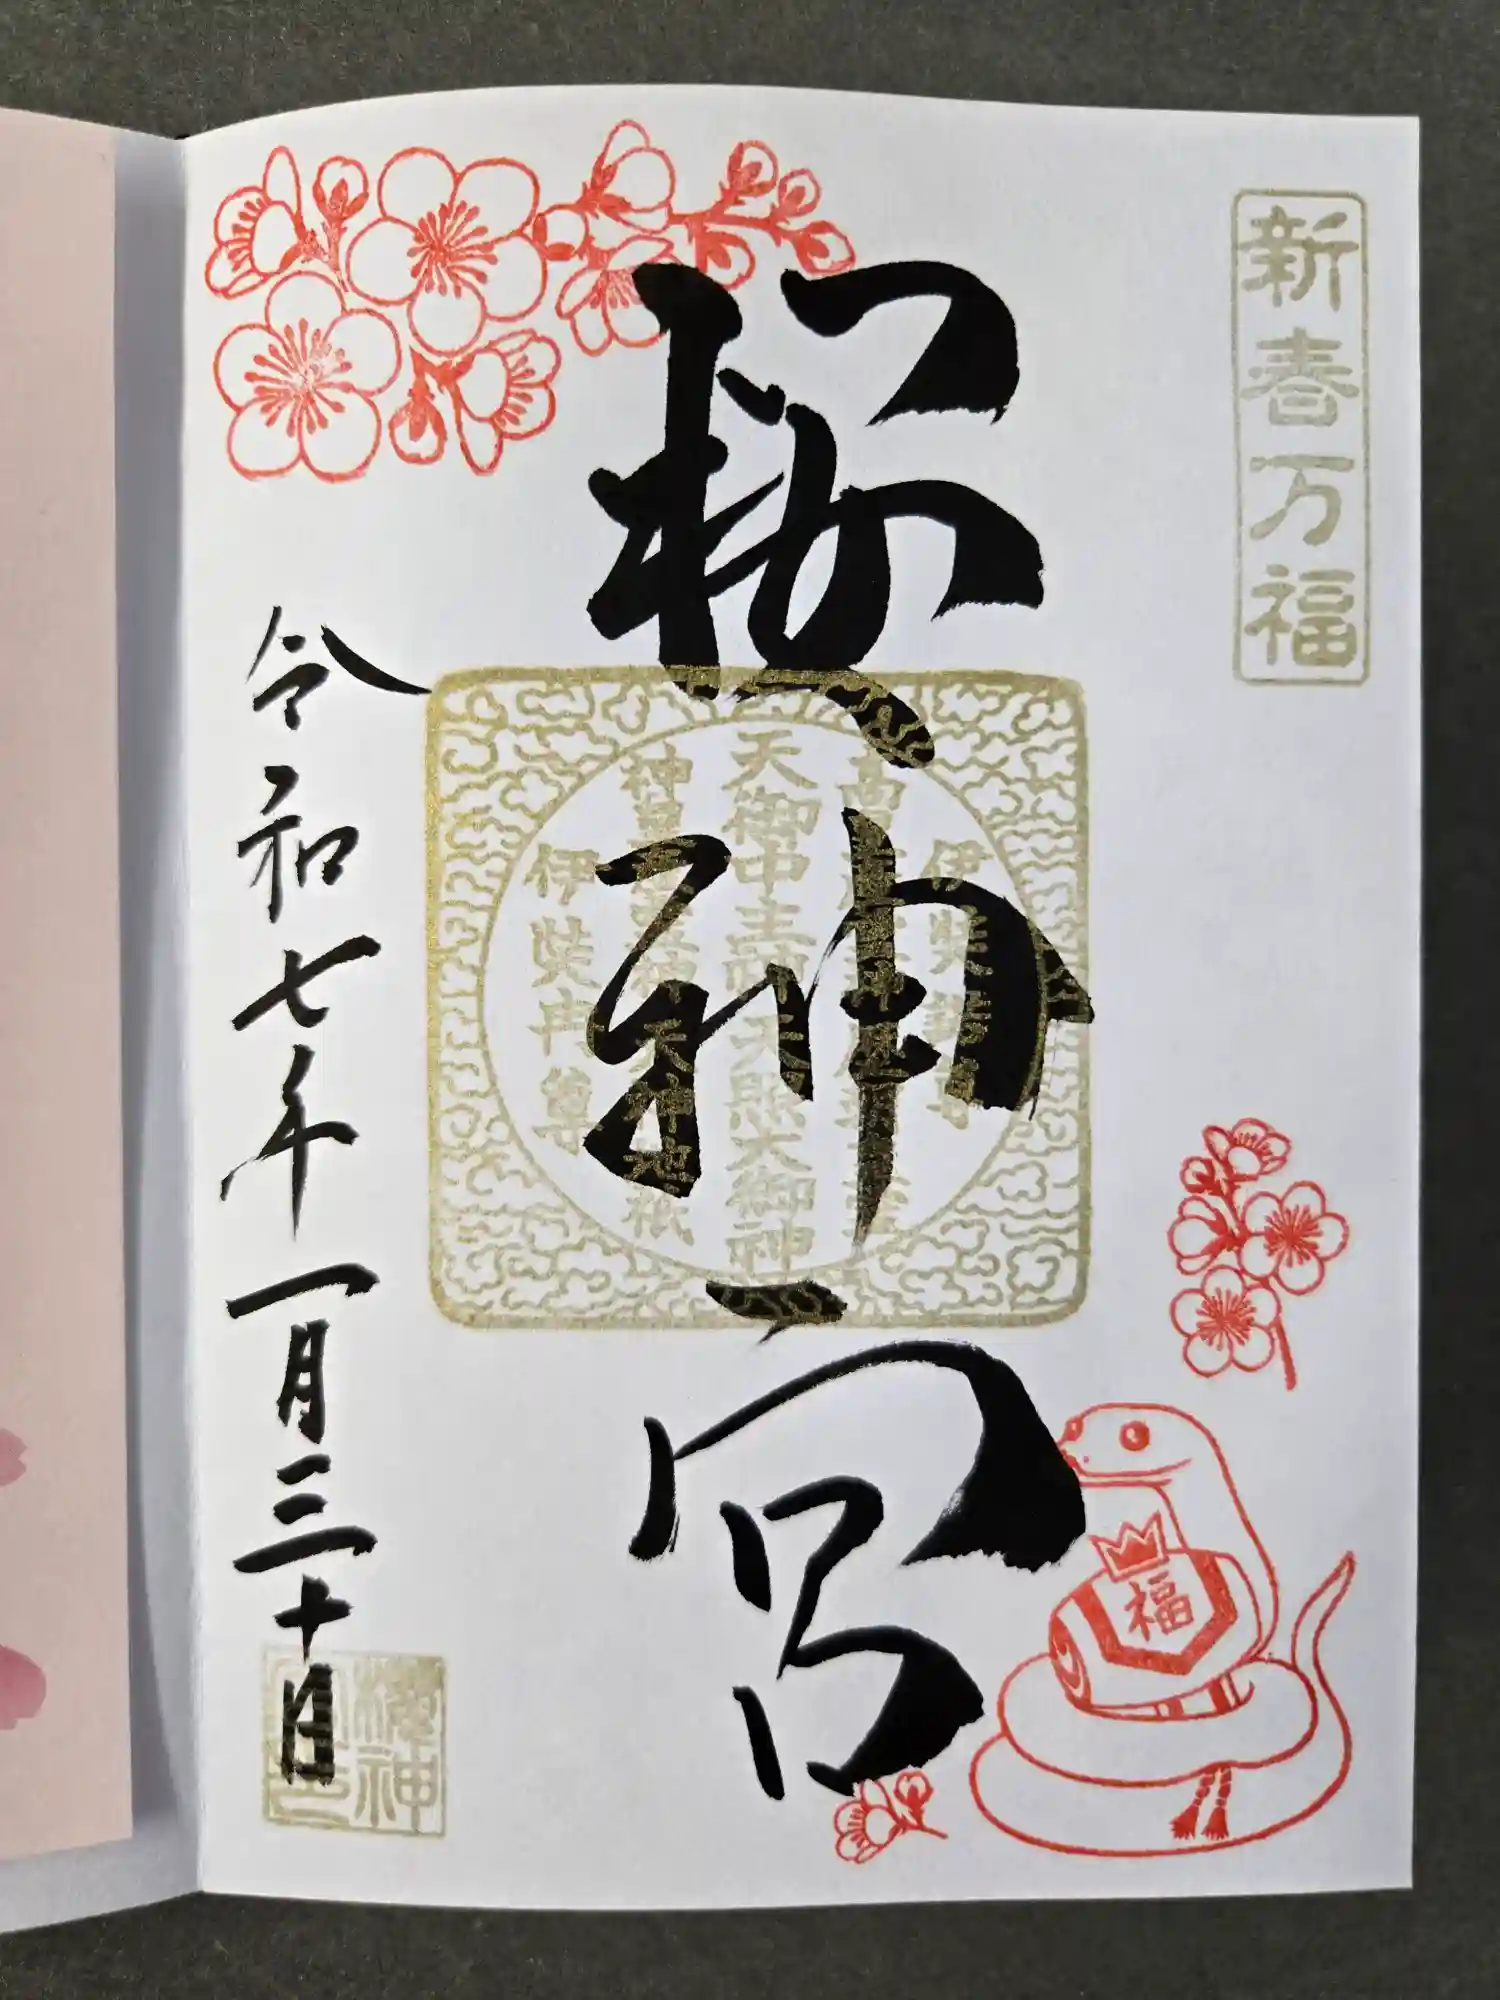 新春万福
桜神宮
伊弉諾尊
天御中主神 天照大御神
伊弉冉尊
令和七年一月三十日
福